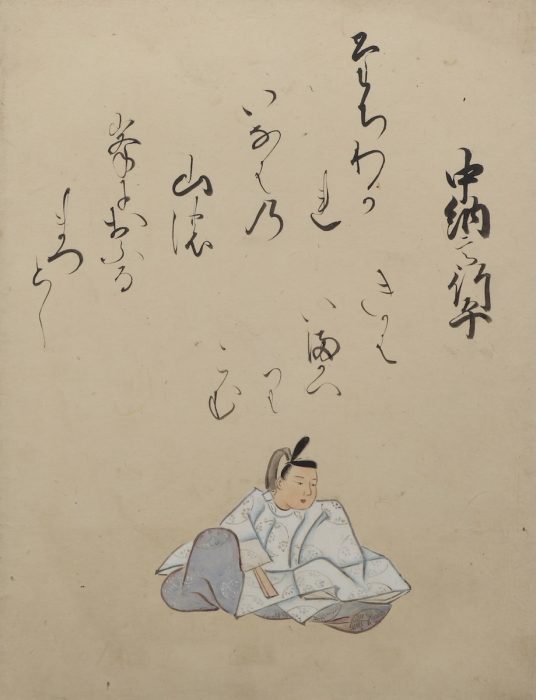 中納言行平
たちわか
れ
いなは乃
山濃
峯におふる
まつとし
きかは
い満かへ
り
こむ